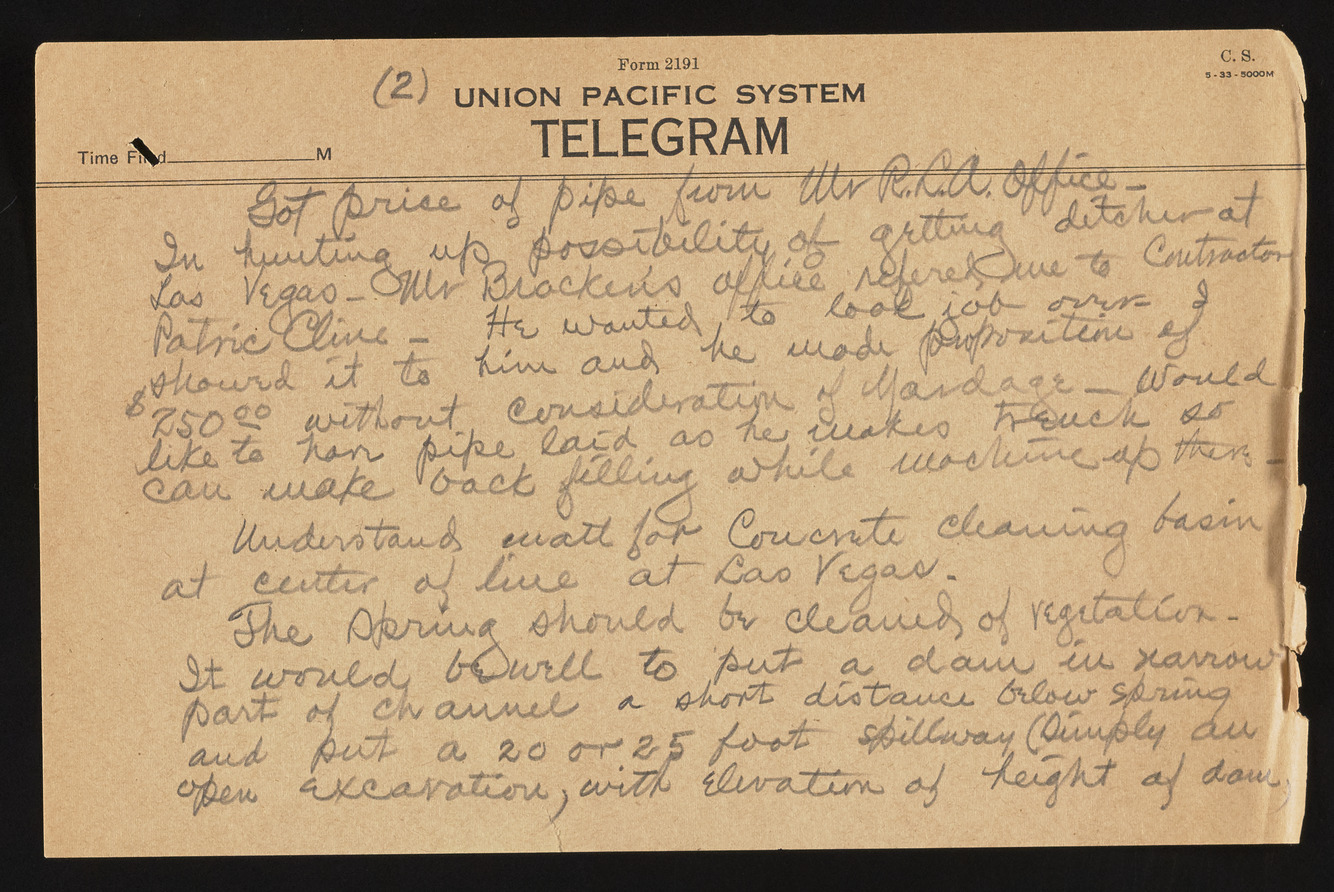 Form 2191
C. S.
5-33-5000M
(2)
UNION PACIFIC SYSTEM
TELEGRAM
Time Filed M
Got price of pipe from Mr R.L.A. Office -
In hunting up possibility of getting ditcher at
Las Vegas - Mr Bracken's office refered me to Contractor
Patric Cline - He wanted to look job over I
showed it to him and he made proposition of
$250.00 without consideration of Yardage - Would
like to have pipe laid as he makes trench so
can make back filling while machine up there -
Understand matl for Concrete cleaning basin
at center of line at Las Vegas.
The Spring should be cleaned of vegetation -
It would be well to put a dam in narrow
part of channel a short distance below spring
and put a 20 or 25 foot spillway (Simply an
open excavation, with elevation of height of dam,